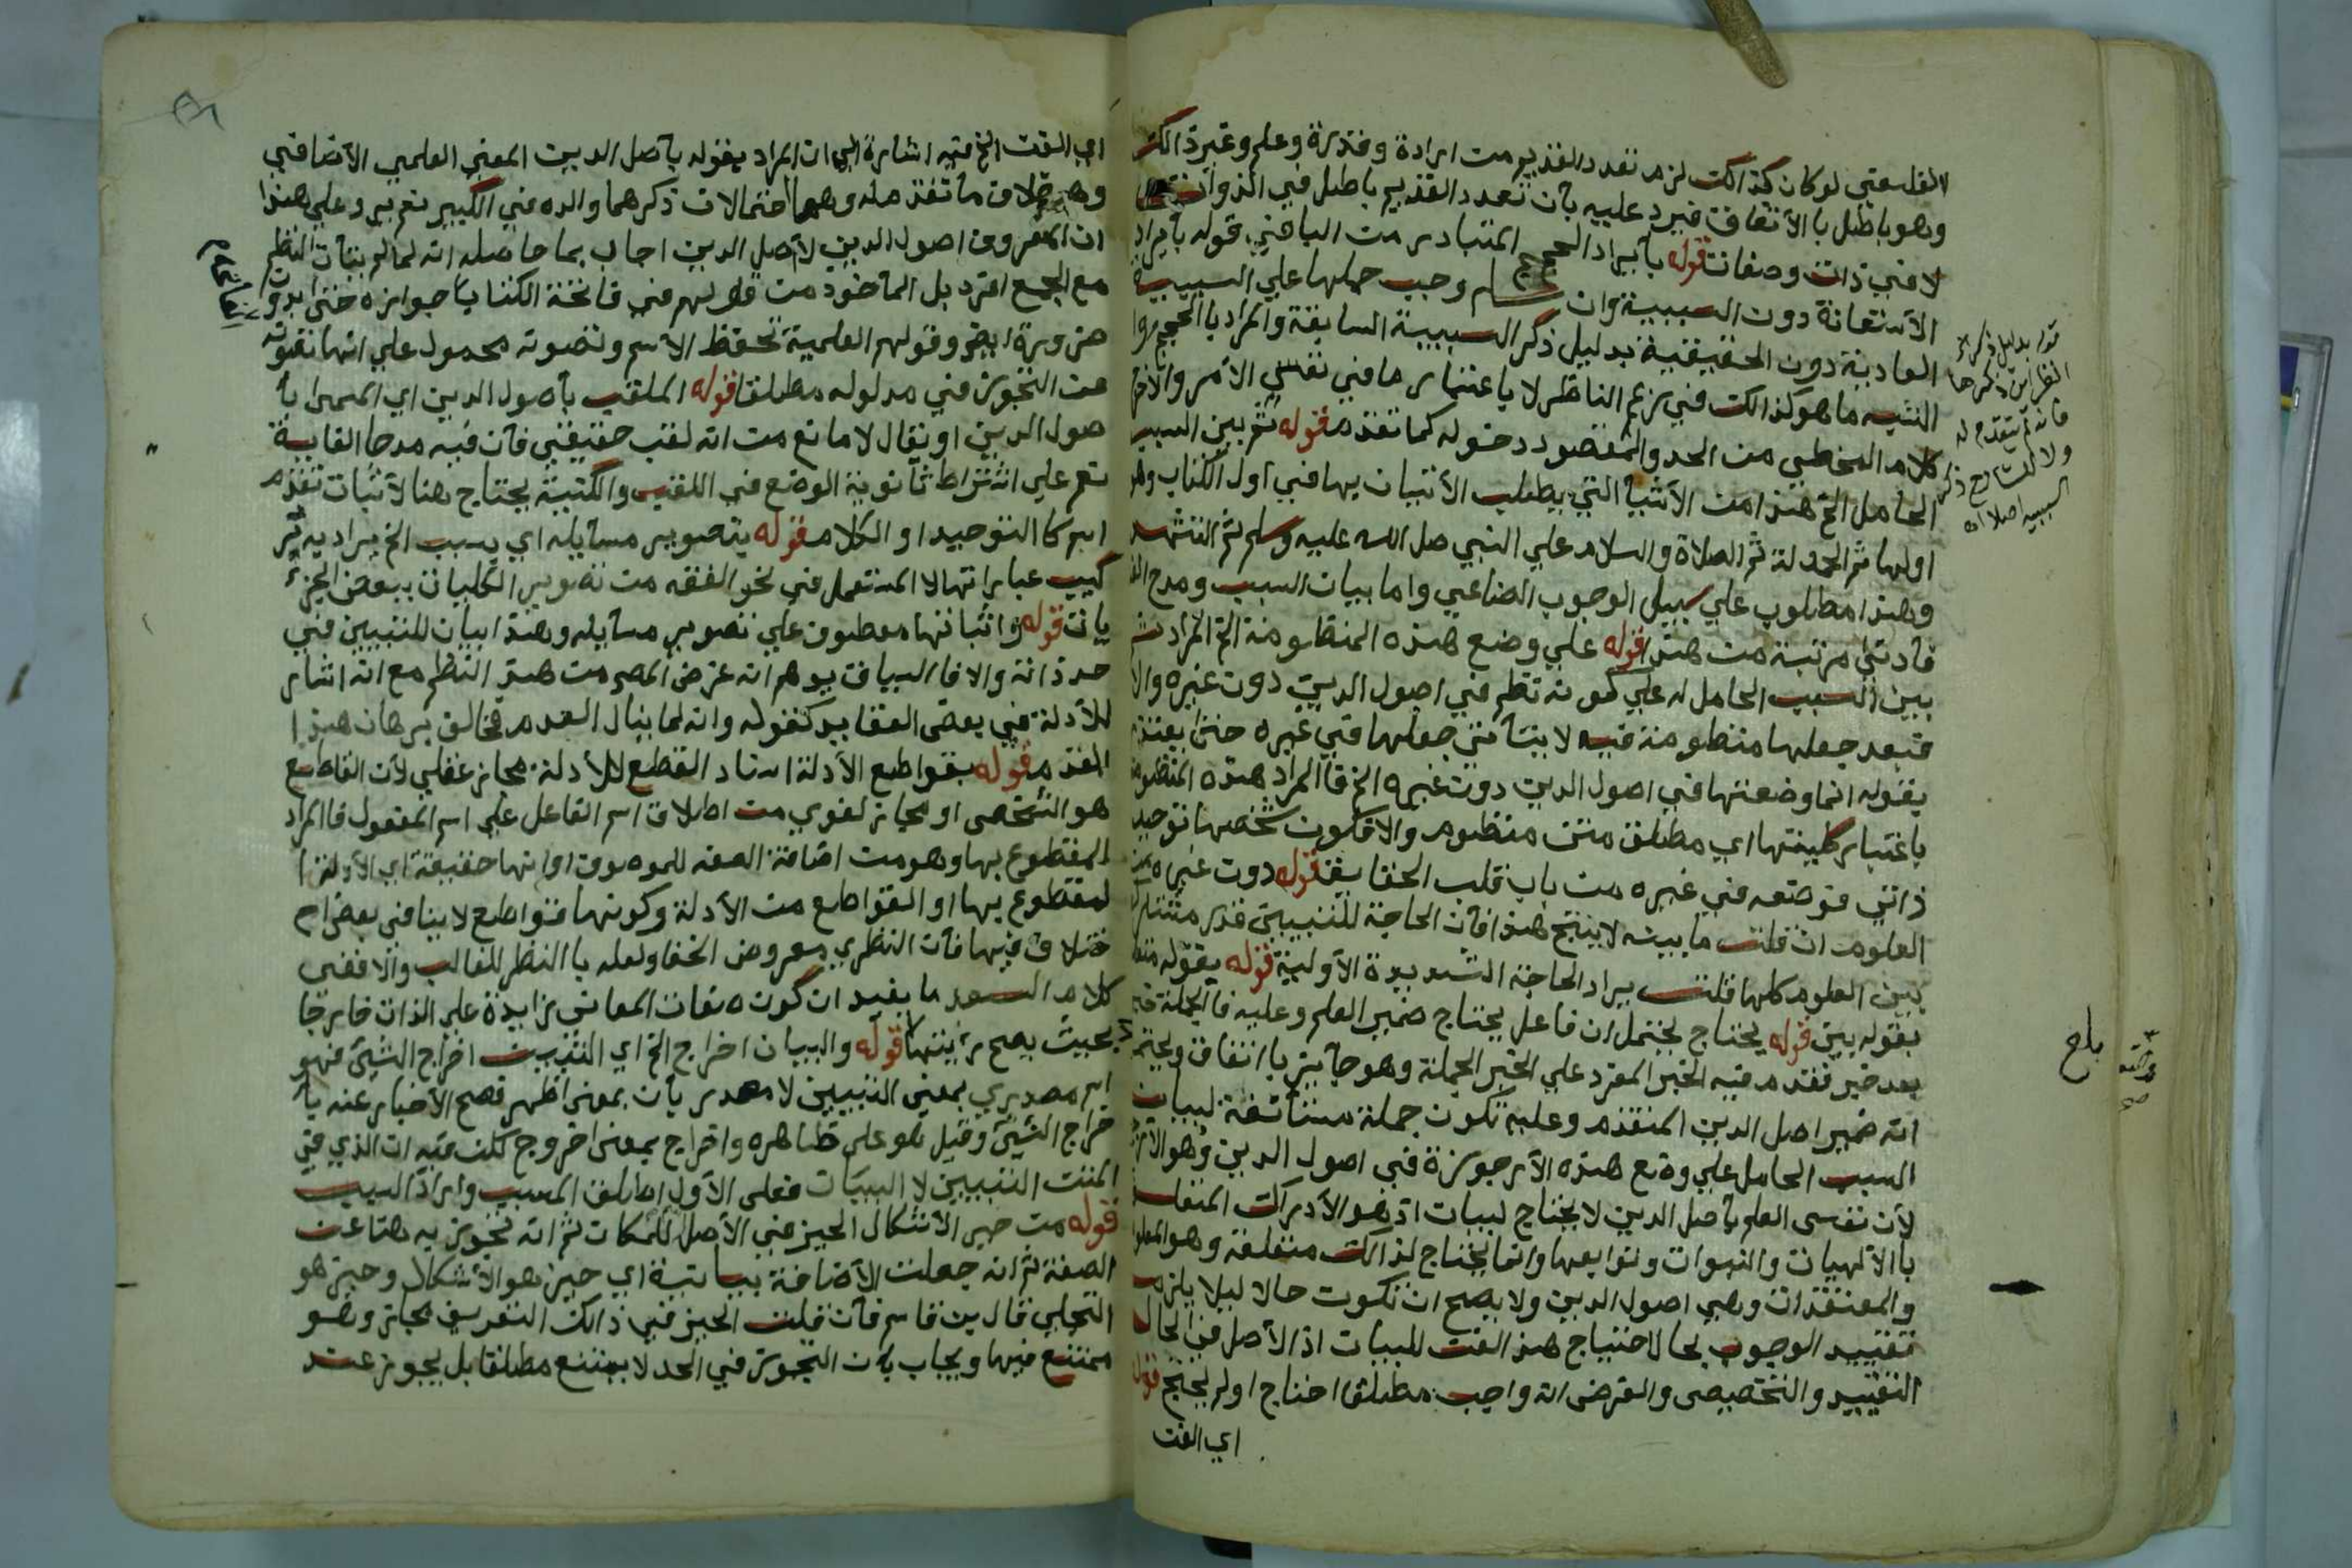 الفلسفي لو كان كذالك لزم تعدد القديم من ارادة وقدرة وعلم وغير ذالك
وهو باطل بالأتفاق فيرد عليه بأن تعدد القديم باطل في الذوات
لا في ذات وصفات قوله بأيراد الحجج المتبادر من الباء في قوله بأيراد
الأستعانة دون السببية وان سلم وجب حملها علي السببية
العادية دون الحقيقية بدليل ذكر السببية السابقة والمراد بالحجج
الشبه ما هو كذالك في زعم الناظر لا باعتبار ما في نفس الأمر والا
كلام المخطي من الحد والمقصود دخوله كما تقدم قوله ثم بين السبب
الحامل الخ هذا من الأشيا التي يطلب الأتيان بها في اول الكتاب وهو
اولها ثم الحمدلة ثم الصلاة والسلام علي النبي صل الله عليه وسلم ثم التشهد
وهذا مطلوب علي سبيل الوجوب الصناعي واما بيان السبب ومدح
فأدنى مرتبة من هذا قوله علي وضع هذه المنظومة الخ المراد
بين السبب الحامل له علي كونه نظم في اصول الدين دون غيره والا
فبعد جعلها منظومة فيه لا يتأتى جعلها في غيره حتى يعتذر
بقوله انما وضعتها في اصول الدين دون غيره الخ فالمراد هذه المنظومة
باعتبار كليتها اي مطلق متن منظوم والا فكون شخصها توحيد
ذاتي فوضعه في غيره من باب قلب الحقايق قوله دون غيره من
العلوم ان قلت ما بينه لا ينتج هذا فأن الحاجة للتبيين قدر مشترك
بين العلوم كلها قلت يراد الحاجة الشديدة الأولية قوله بقوله
بقوله بين قوله يحتاج يحتمل ان فاعل يحتاج ضمير العلم وعليه فالجملة خبر
بعد خبر فقدم فيه الخبر المفرد علي الخبر الجملة وهو جايز بااتفاق ويحتمل
انه ضمير اصل الدين المتقدم وعليه تكون جملة مستأنفة لبيان
السبب الحامل علي وضع هذه الأرجوزة في اصول الدين وهو
لأن نفس العلم بأصل الدين لا يحتاج لبيان اذ هو الأدراك المتعلق
باالألهيات والنبوات وتوابعها وانما يحتاج لذالك متعلقه وهو
والمعتقدات وهي اصول الدين ولا يصح ان تكون حالا ليلا يلزم
تقييد الوجوب بحالاحتياج هذا الفن للبيان اذ الأصل في الحال
التقييد والتخصيص والفرض انه واجب مطلقا احتاج اولم يحتج قوله
اي الفن
قوله بدليل ذكر
انظر اين ذكرها
فانه لم يتقدم له
ولا للشارح ذكر
السببيه اصلا اه
بلغ
اي الفن الخ فيه اشارة الي ان المراد بقوله بأصل الدين المعني العلمي الأضافي
وهو خلاف ما تقدم له وهما احتمالان ذكرهما والده في الكبير تم بر وعلي هذا
ان المعروف اصول الدين لا اصل الدين اجاب بما حاصله انه لما لم يتأت النظم
مع الجمع افرد بل المأخوذ من قولهم في فاتحة الكتاب جوازه حتى بدون
ضرورة ايضر وقولهم العلمية تحفظ الاسم وتصونه محمول علي انها تصونه
عن التجوز في مدلوله مطلقا قوله الملقب بأصول الدين اي المسمى بأ
صول الدين او يقال لا مانع من انه لقب حقيقي فأن فيه مدحا القابية
نعم علي اشتراط ثانوية الوضع في اللقب والكنية يحتاج هنا لأثبات تقدم
اسم كا التوحيد او الكلام قوله بتصوير مسايله اي بسبب الخ يراد به تر
كيب عباراتها لا المستعمل في نحو الفقه من تصوير الكليات ببعض الجزء
يات قوله واثباتها معطوف علي تصوير مسايله وهذا بيان للتبيين في
حد ذاته والا فا السياق يوهم انه غرض المص من هذا النظم مع انه اشار
للأدلة في بعض العقايد كقوله وانه لما ينال العدم مخالف برهان هذا
القدم قوله بقواطع الأدلة اسناد القطع للأدلة مجاز عقلي لأن القاطع
هو الشخص او مجاز لغوي من اطلاق اسم الفاعل علي اسم المفعول فالمراد
المقطوع بها وهو من اضافة الصفه للموصوف او انها حقيقة اي الأدلة ا
لمقطوع بها او القواطع من الأدلة وكونها قواطع لا ينافي بعض ا
ختلاف فيها فأن النظري معروض الخفا ولعله باالنظر للغالب والا ففي
كلام السعد ما يفيد ان كون صفات المعاني زايدة علي الذات خارجا
بحيث يصح رؤيتها قوله والبيان اخراج الخ اي التبين اخراج الشيء فهو
اسم مصدري بمعني التبيين لا مصدر بان بمعنى اظهر فصح الأخبار عنه بأ
خراج الشيء وقيل هو علي ظاهره واخراج بمعنى خروج كلن فيه ان الذي في
المتن التبيين لا البيان فعلى الأول اطلق المسبب واراد السبب
قوله من حيز الأشكال الحيز في الأصل للمكان ثم انه تجوز به هنا عن
الصفة ثم انه جعلت الأضافة بيانية اي حيز هو الأشكال وحيز هو
التجلي قال ابن قاسم فأن قلت الحيز في ذالك التعريف مجاز وهو
ممتنع فيها ويجاب بأن التجوز في الحد لا يمتنع مطلقا بل يجوز عند